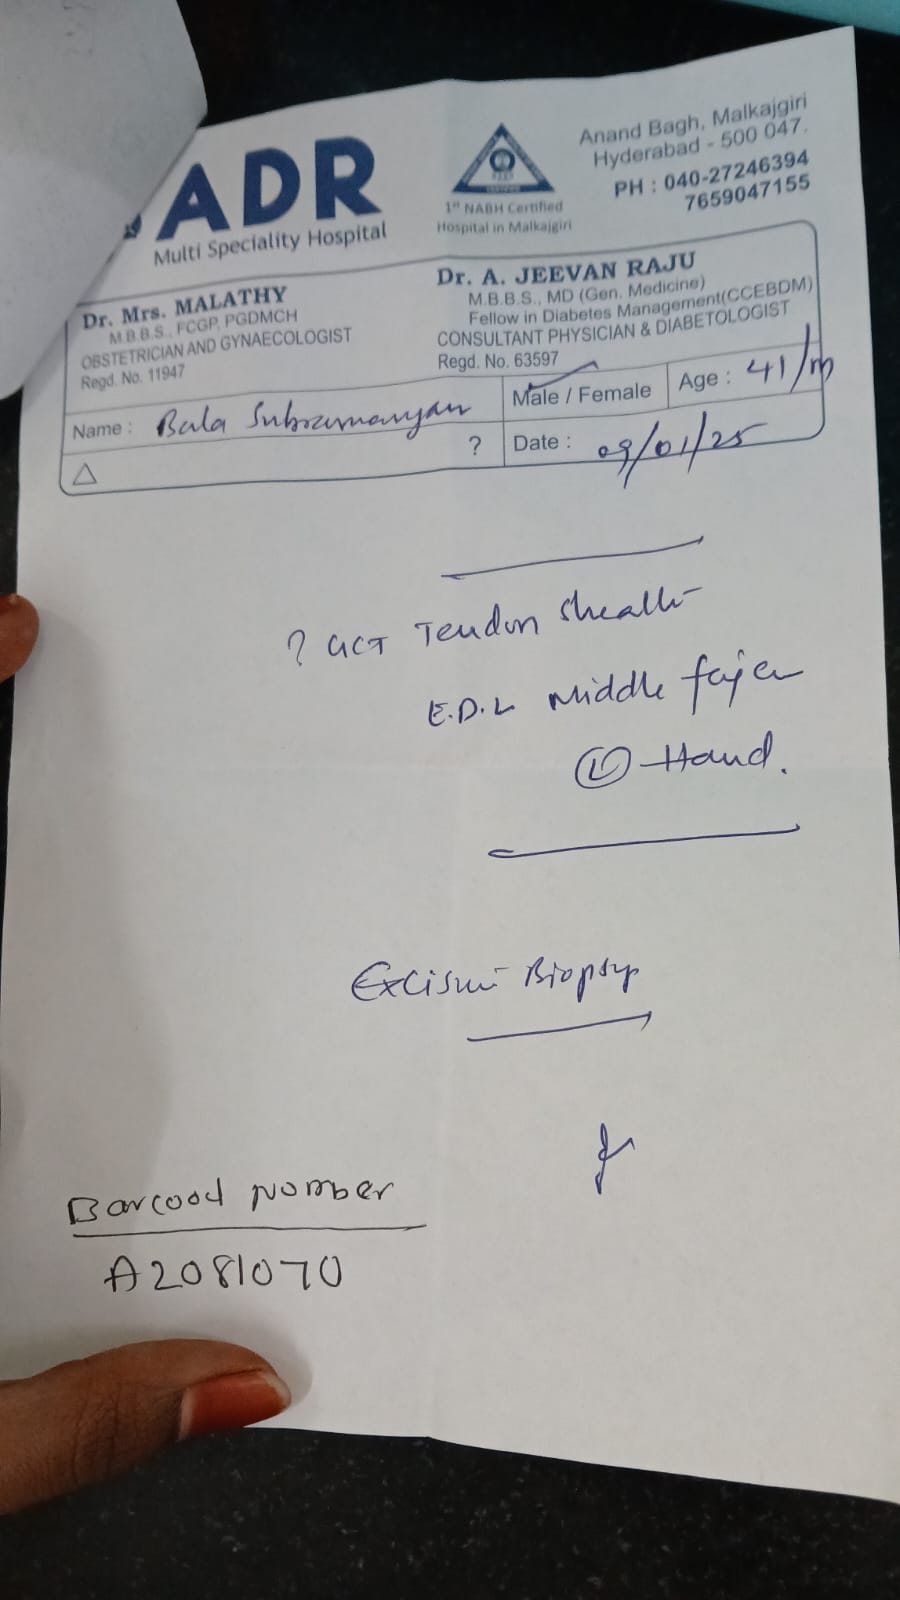 ADR
Multi Speciality Hospital
1st NABH Certified
Hospital in Malkajgiri
Anand Bagh, Malkajgiri
Hyderabad - 500 047.
PH : 040-27246394
7659047155
Dr. Mrs. MALATHY
M.B.B.S., FCGP, PGDMCH
OBSTETRICIAN AND GYNAECOLOGIST
Regd. No. 11947
Dr. A. JEEVAN RAJU
M.B.B.S., MD (Gen. Medicine)
Fellow in Diabetes Management(CCEBDM)
CONSULTANT PHYSICIAN & DIABETOLOGIST
Regd. No. 63597
Name : Bala Subramanyan
Male / Female
Age : 41/m
△ ?
Date : 09/01/25
? GCT Tendon Sheath
E.D.L Middle finger
(L) Hand.
Excision Biopsy
Barcood Nomber
A2081070